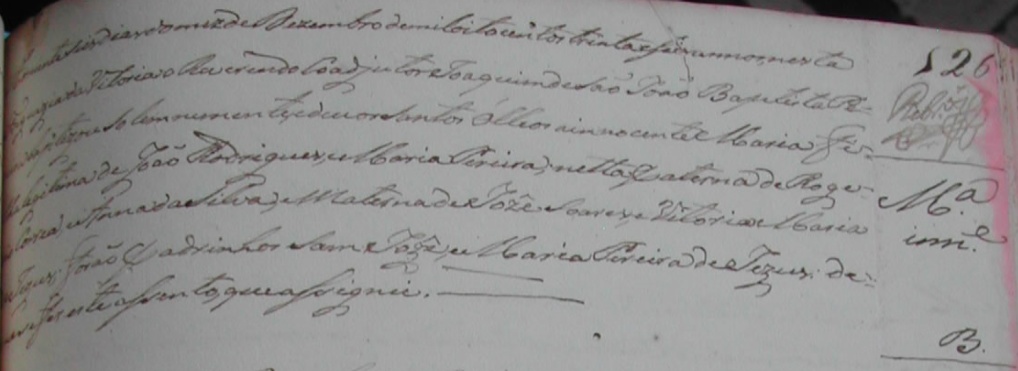 dias do mez de Dezembro de mil oito centos trinta e seis annos, nesta
da Vitoria o Reverendo Coadjutor Joaquim de São João Baptista Re-
solemnumente, e deu os Santos Olleos a innocente Maria fi-
legitima de João Rodrigues, e Maria Pereira, netta Paterna de Roge-
e Anna da Silva, e Materna de Jozê Soares, e Vitoria Maria
Jezus, forão Padrinhos Sam Jozê, e Maria Pereira de Jezus: de
fis este assento, que assignei.
126
M.ª
inn.e
B.